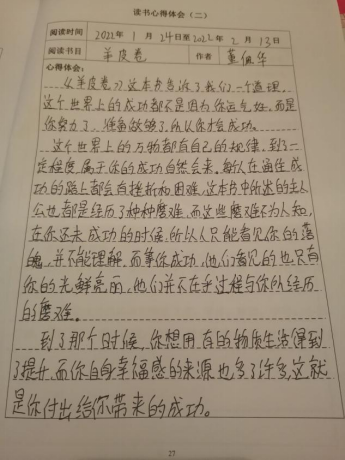 读书心得体会（二）
阅读时间 2022年1月24日至2022年2月13日
阅读书目 羊皮卷 作者 董佩华
心得体会：
《羊皮卷》这本书告诉了我们一个道理，
这个世界上的成功都不是因为你运气好，而是
你努力了，准备做够了，所以你才会成功。
这个世界上的万物都有自己的规律，到了一
定程度，属于你的成功自然会来。每个人在通往成
功的路上都会有挫折和困难，这本书中所述的主人
公也都是经历了种种磨难，而这些磨难不为人知，
在你还未成功的时候，所以人只能看见你的落
魄，并不能理解，而等你成功，他们看见的也只有
你的光鲜亮丽，他们并不在乎过程与你所经历
的磨难。
到了那个时候，你想拥有的物质生活得到
了提升，而你自身幸福感的来源也多了许多，这就
是你付出给你带来的成功。
27